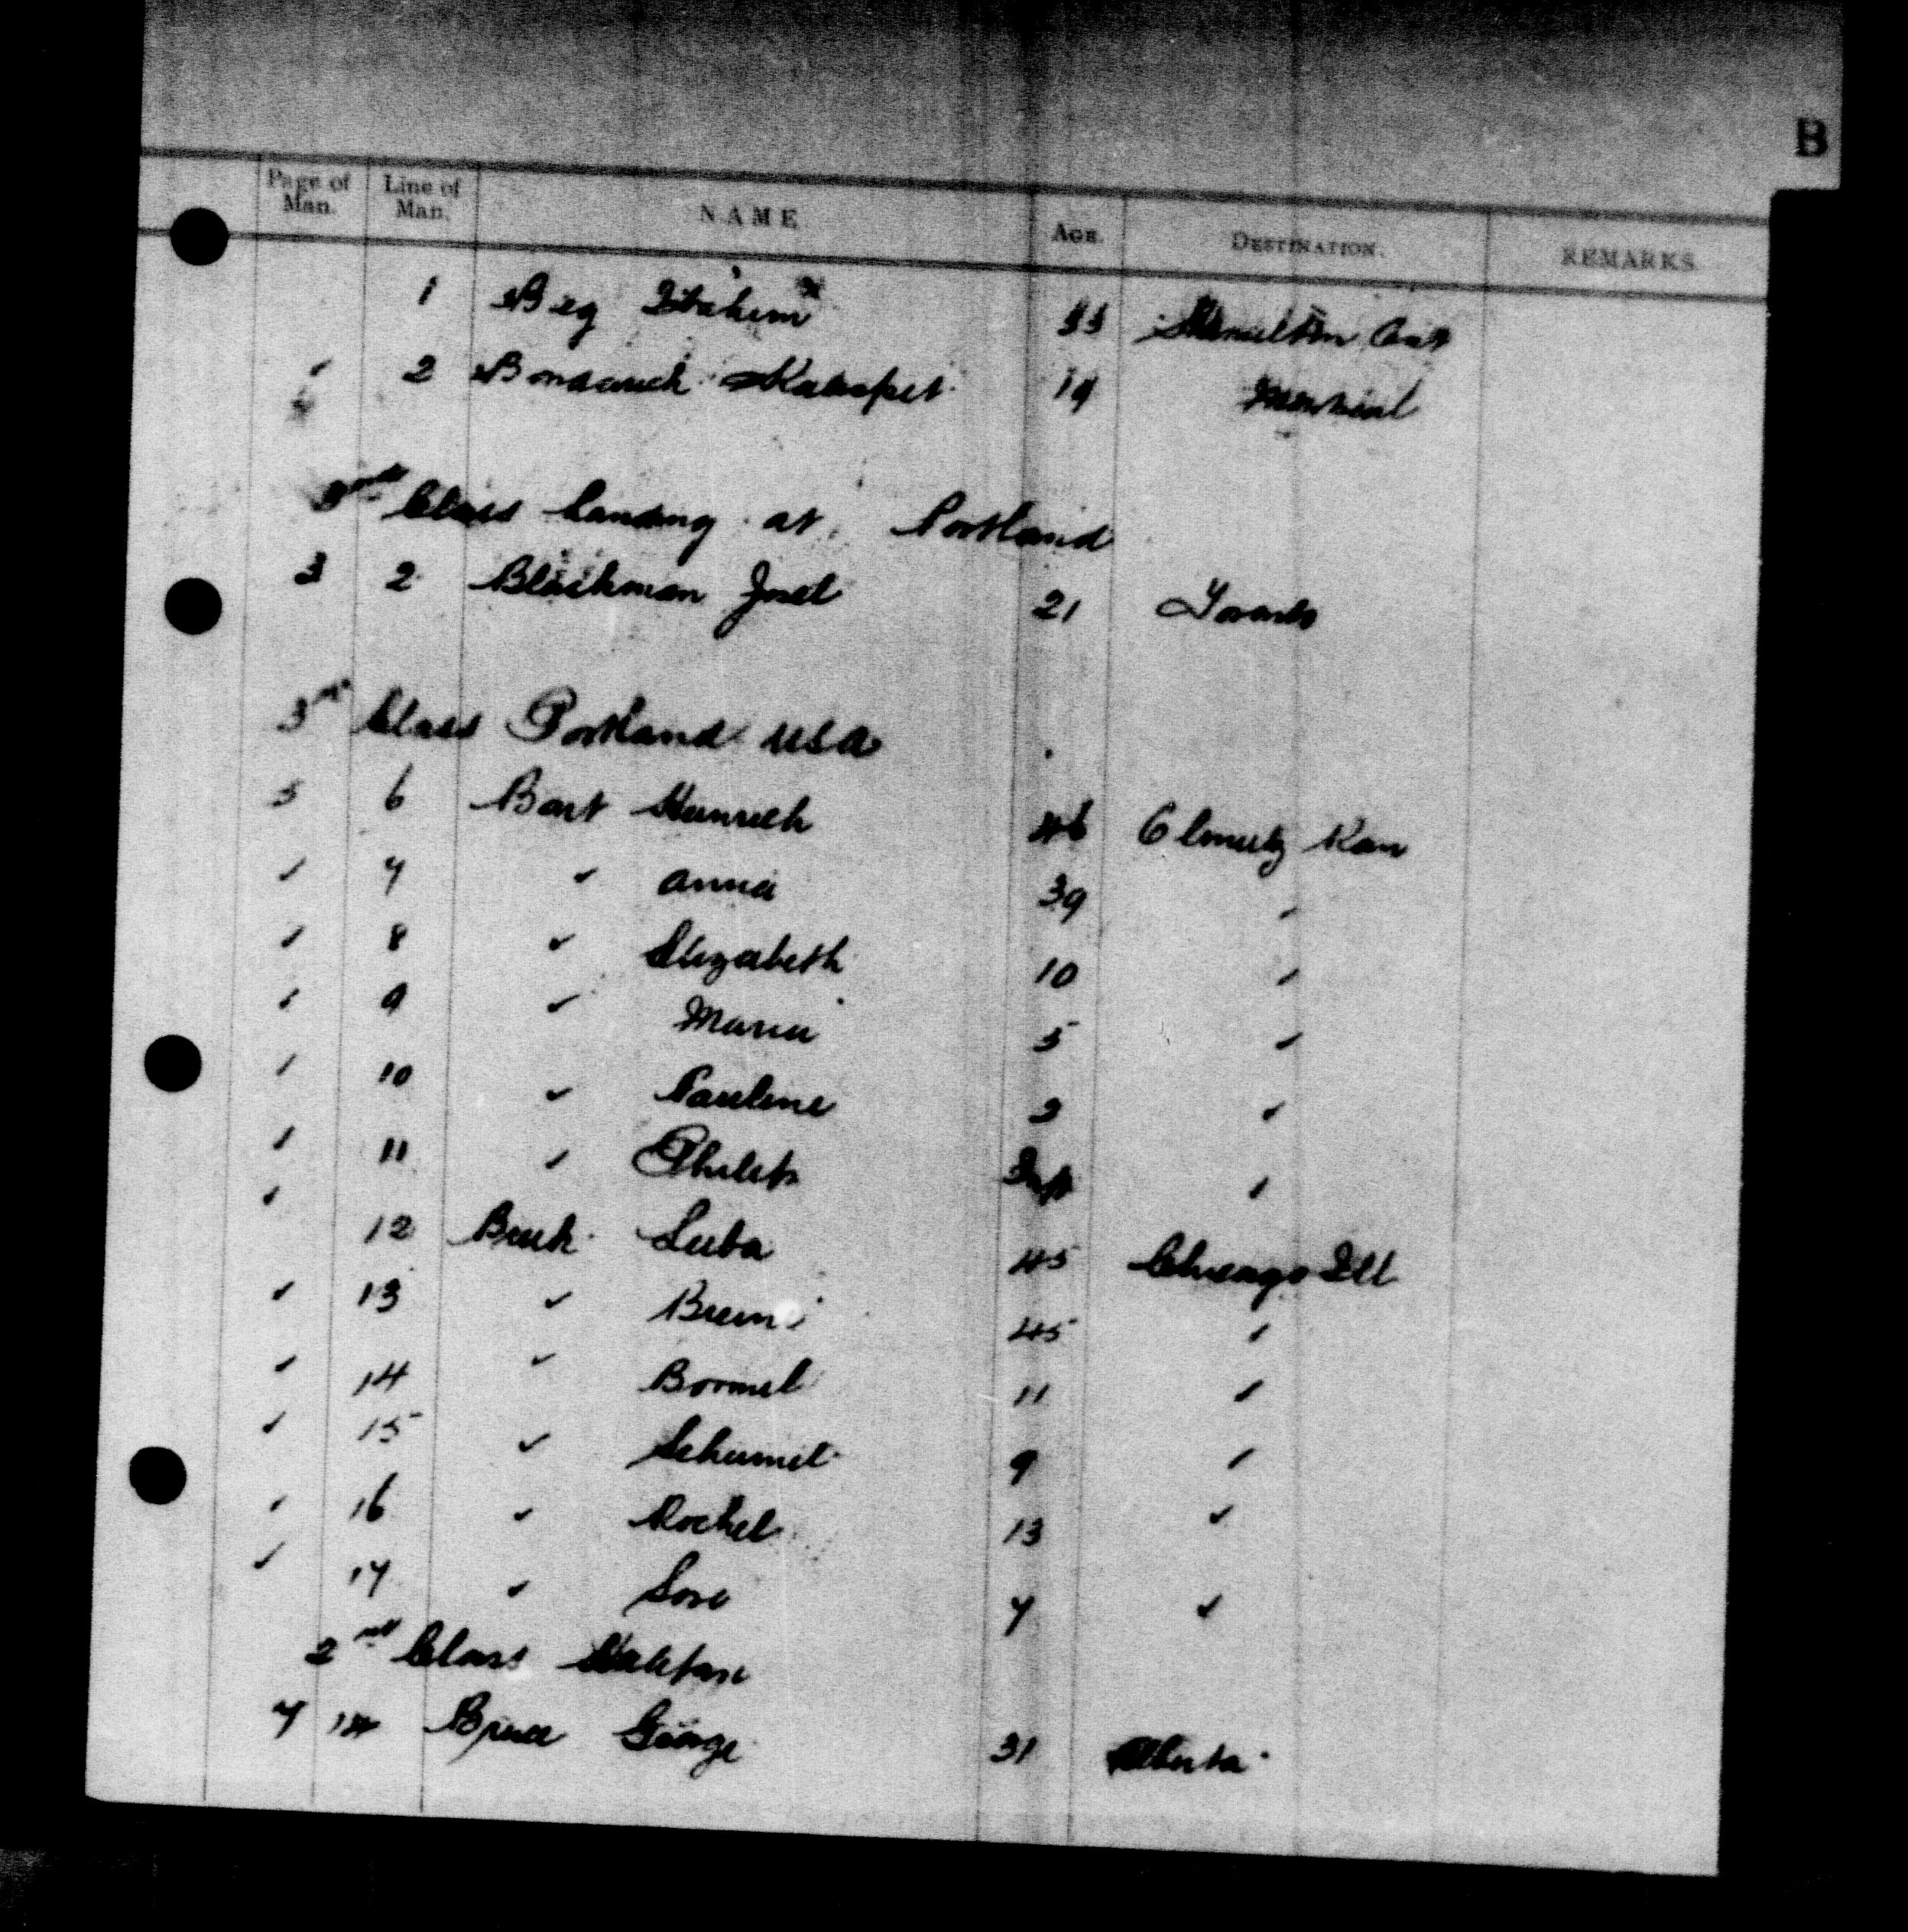 B
Page of Man. Line of Man. NAME AGE. DESTINATION. REMARKS
1 Beg Ibrahim 33 Hamilton Ont
✓ 2 Bondaruck 19 Montreal
Class Landing at Portland
3 2 Blackman Josel 21 Toronto
3rd Class Portland USA
5 6 Bart Heinrich 46 Olmutz Kan
✓ 7 ✓ Anna 39 ✓
✓ 8 ✓ Elizabeth 10 ✓
✓ 9 ✓ Maria 5 ✓
✓ 10 ✓ Pauline 2 ✓
✓ 11 ✓ Philip Inft ✓
✓ 12 Bruk Luba 45 Chicago Ill
✓ 13 ✓ 45 ✓
✓ 14 ✓ Bormel 11 ✓
✓ 15 ✓ Schumil 9 ✓
✓ 16 ✓ Rochel 13 ✓
✓ 17 ✓ Sore 7 ✓
2nd Class Halifax
7 14 Bruce George 31 Alberta